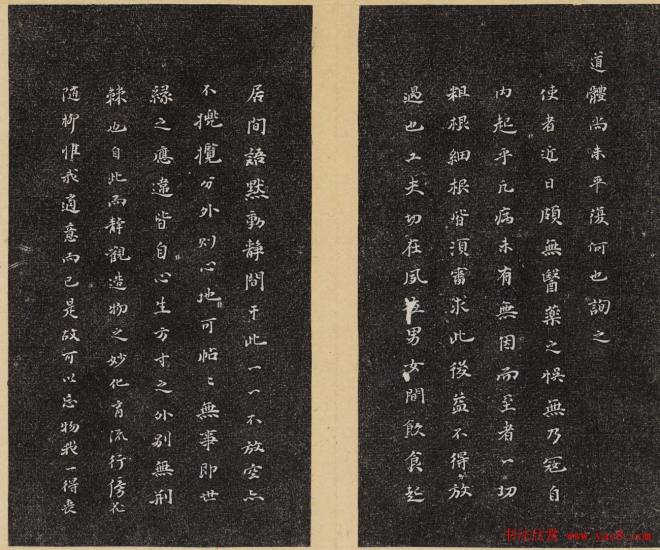 道體尚未平復何也詢之
使者近日頗無醫藥之悞無乃寇自
内起乎凡病未有無因而至者一切
粗根細根皆須審求此後益不得放
過也工夫切在夙莅男女間飲食起
居間語默動靜間于此一一不放空亦
不攙攬分外則心地可帖帖無事即世
緣之應違皆自心生方寸之外別無荆
棘也自此而靜觀造物之妙化育流行傍花
随柳惟我適意而已是故可以忘物我一得喪